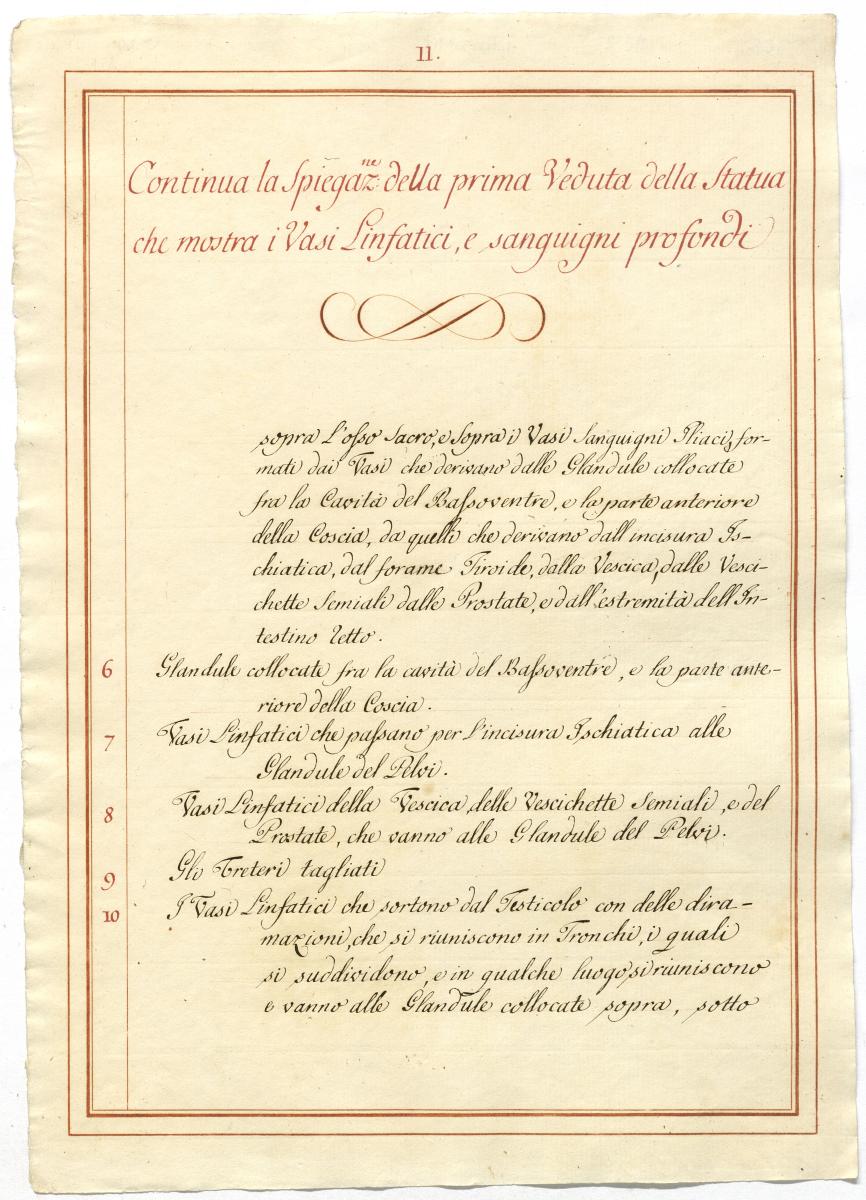 11.
Continua la Spiegaz.ne della prima Veduta della Statua
che mostra i Vasi Linfatici, e sanguigni profondi
sopra l'osso Sacro, e Sopra i Vasi Sanguigni Iliaci, for-
mati dai Vasi che derivano dalle Glandule collocate
fra la Cavità del Bassoventre, e la parte anteriore
della Coscia, da quelli che derivano dall'incisura Is-
chiatica, dal forame Tiroide, dalla Vescica, dalle Vesci-
chette Semiali dalle Prostate, e dall'estremità dell'In-
testino Retto.
6 Glandule collocate fra la cavità del Bassoventre, e la parte ante-
riore della Coscia.
7 Vasi Linfatici che passano per l'incisura Ischiatica alle
Glandule del Pelvi.
8 Vasi Linfatici della Vescica, delle Vescichette Semiali, e del
Prostate, che vanno alle Glandule del Pelvi.
9 Gli Ureteri tagliati
10 I Vasi Linfatici che sortono dal Testicolo con delle dira-
mazioni, che si riuniscono in Tronchi, i quali
si suddividono, e in qualche luogo, si riuniscono
e vanno alle Glandule collocate sopra, sotto